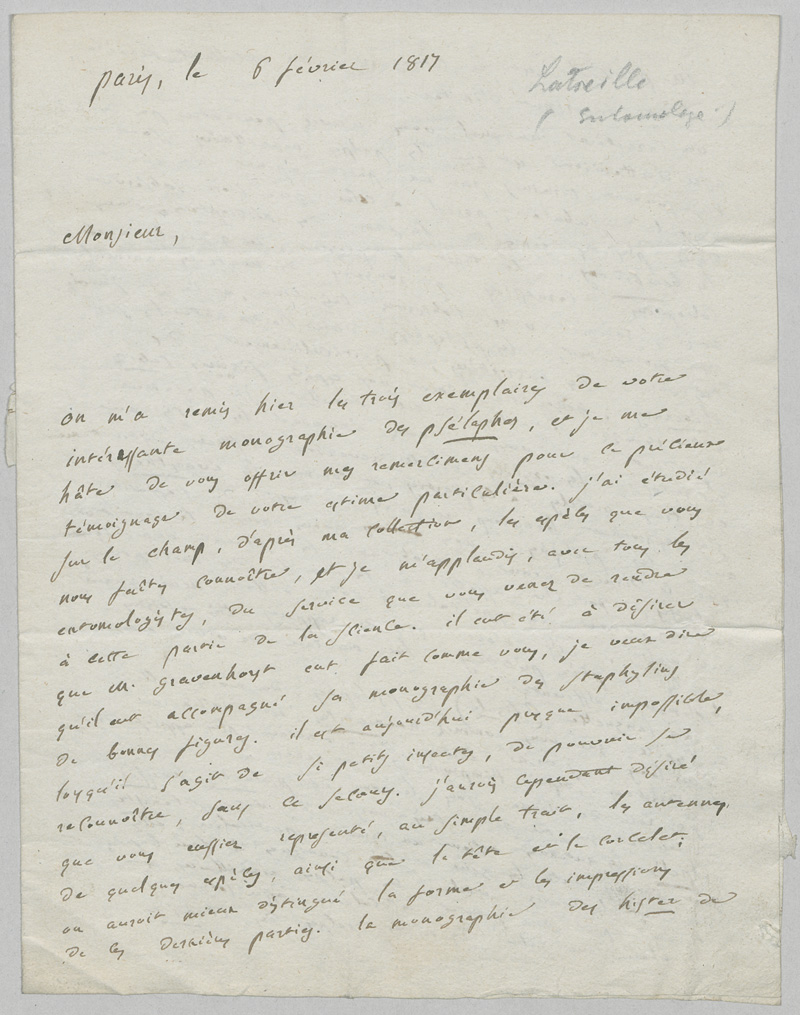 paris, le 6 février 1817
Latreille
( Entomologie )
Monsieur,
on m'a remis hier les trois exemplaires de votre
intéressante monographie des psélaphes, et je me
hâte de vous offrir mes remercimens pour ce précieux
témoignage de votre estime particulière. j'ai étudié
sur le champ, d'après ma collection, les espèces que vous
nous faites connoître, et je m'applaudis, avec tous les
entomologistes, du service que vous venez de rendre
à cette partie de la science. il eut été à désirer
que m. gravenhorst eut fait comme vous, je veux dire
qu'il eut accompagné sa monographie des staphylins
de bonnes figures. il est aujourd'hui presque impossible,
lorsqu'il s'agit de si petits insectes, de pouvoir se
reconnoître, sans ce secours. j'aurois cependant désiré
que vous eussiez représenté, au simple trait, les antennes
de quelques espèces, ainsi que la tête et le corcelet;
on auroit mieux distingué la forme et les impressions
de ces dernières parties. la monographie des hister de